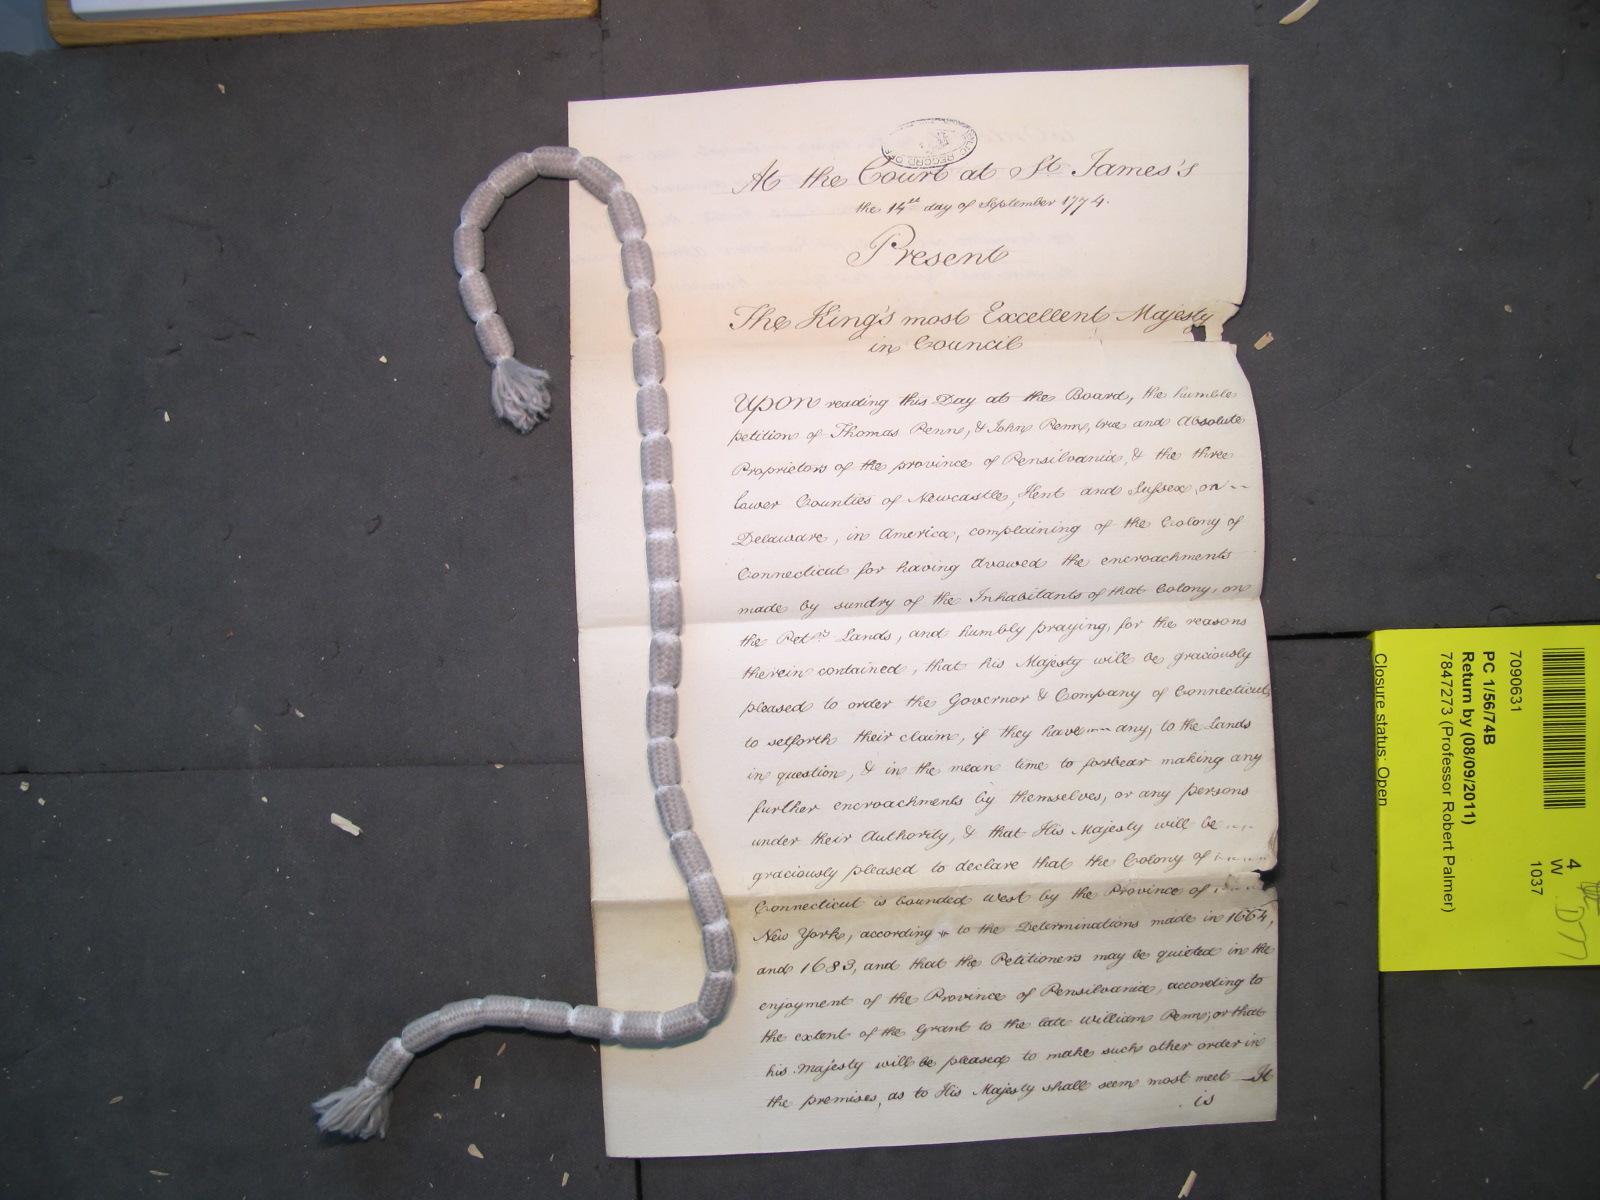 PUBLIC RECORD OFF
At the Court at St James's
the 14th day of September 1774.
Present
The King's most Excellent Majesty
in Council
Upon reading this Day at the Board, the humble
petition of Thomas Penn, & John Penn, true and Absolute
Proprietors of the province of Pensilvania, & the three
lower Counties of Newcastle, Kent and Sussex, on --
Delaware, in America, complaining of the Colony of
Connecticut for having Avowed the encroachments
made by sundry of the Inhabitants of that Colony, on
the Petrs Lands, and humbly praying, for the reasons
therein contained, that his Majesty will be graciously
pleased to order the Governor & Company of Connecticut
to setforth their claim, if they have --- any, to the Lands
in question, & in the mean time to forbear making any
further encroachments by themselves, or any persons
under their Authority, & that His Majesty will be ....
graciously pleased to declare that the Colony of
Connecticut is bounded West by the Province of
New York, according to the Determinations made in 1664,
and 1683, and that the Petitioners may be quieted in the
enjoyment of the Province of Pensilvania, according to
the extent of the Grant to the late William Penn; or that
his Majesty will be pleased to make such other order in
the premises, as to His Majesty shall seem most meet — It
is
7090631
PC 1/56/74B
Return by (08/09/2011)
7847273 (Professor Robert Palmer)
Closure status: Open
4
W
1037
D77